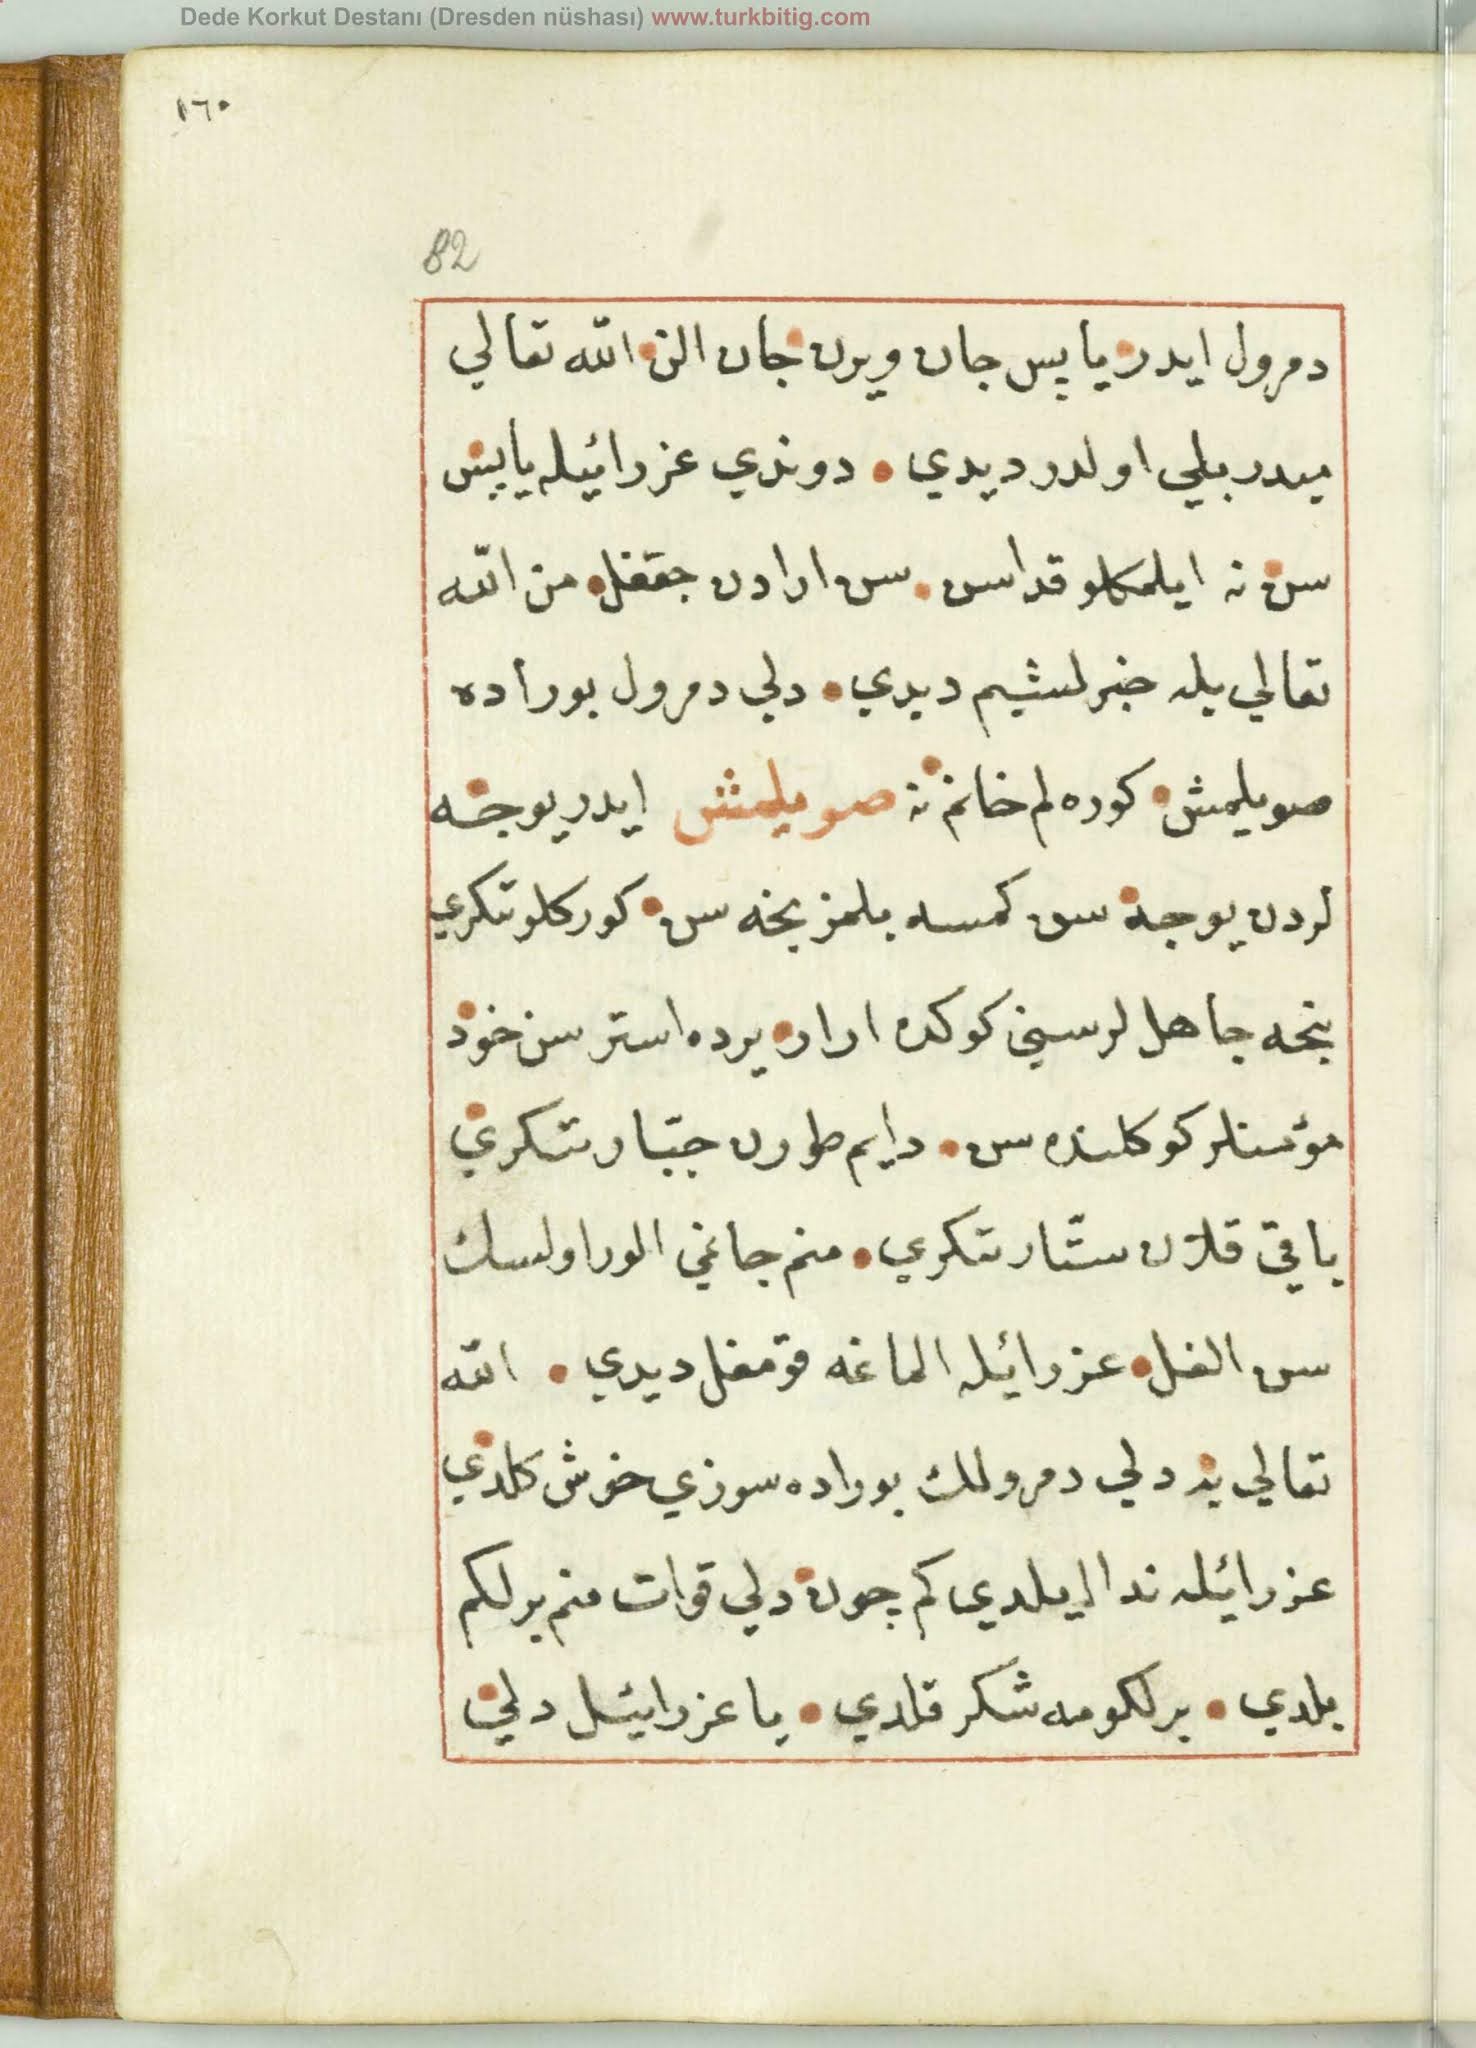 Dede Korkut Destanı (Dresden nüshası) www.turkbitig.com
١٦٠
82
دمرول ايدر يا پس جان ويرن جان الن الله تعالي
ميدر بلي اولدر ديدي • دوندي عزرائيله يا پس
سن نه ايلمكلو قداسن • سن ارادن جقغل • من الله
تعالي يله خبرلشيم ديدي • دلي دمرول بوراده
صويلمش • كوره لم خانم نه صويلمش ايدر يوجه
لردن يوجه سن كمسه بلمز نجه سن • كوركلو تكري
نجه جاهل لر سني كوكده ارار • يرده استر سن خود
مؤمنلر كوكلنده سن • دايم طورن جبّار تكري
باقي قلان ستّار تكري • منم جانمي الور اولسك
سن الغل • عزرائيله الماغه قومغل ديدي • الله
تعالي يه دلي دمرولك بوراده سوزي خوش كلدي
عزرائيله ندا ايلدي كم چون دلي قوات منم برلكم
بلدي • برلكومه شكر قلدي • يا عزرائيل دلي